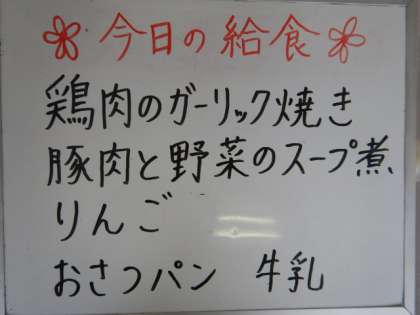 今日の給食
鶏肉のガーリック焼き
豚肉と野菜のスープ煮
りんご
おさつパン 牛乳